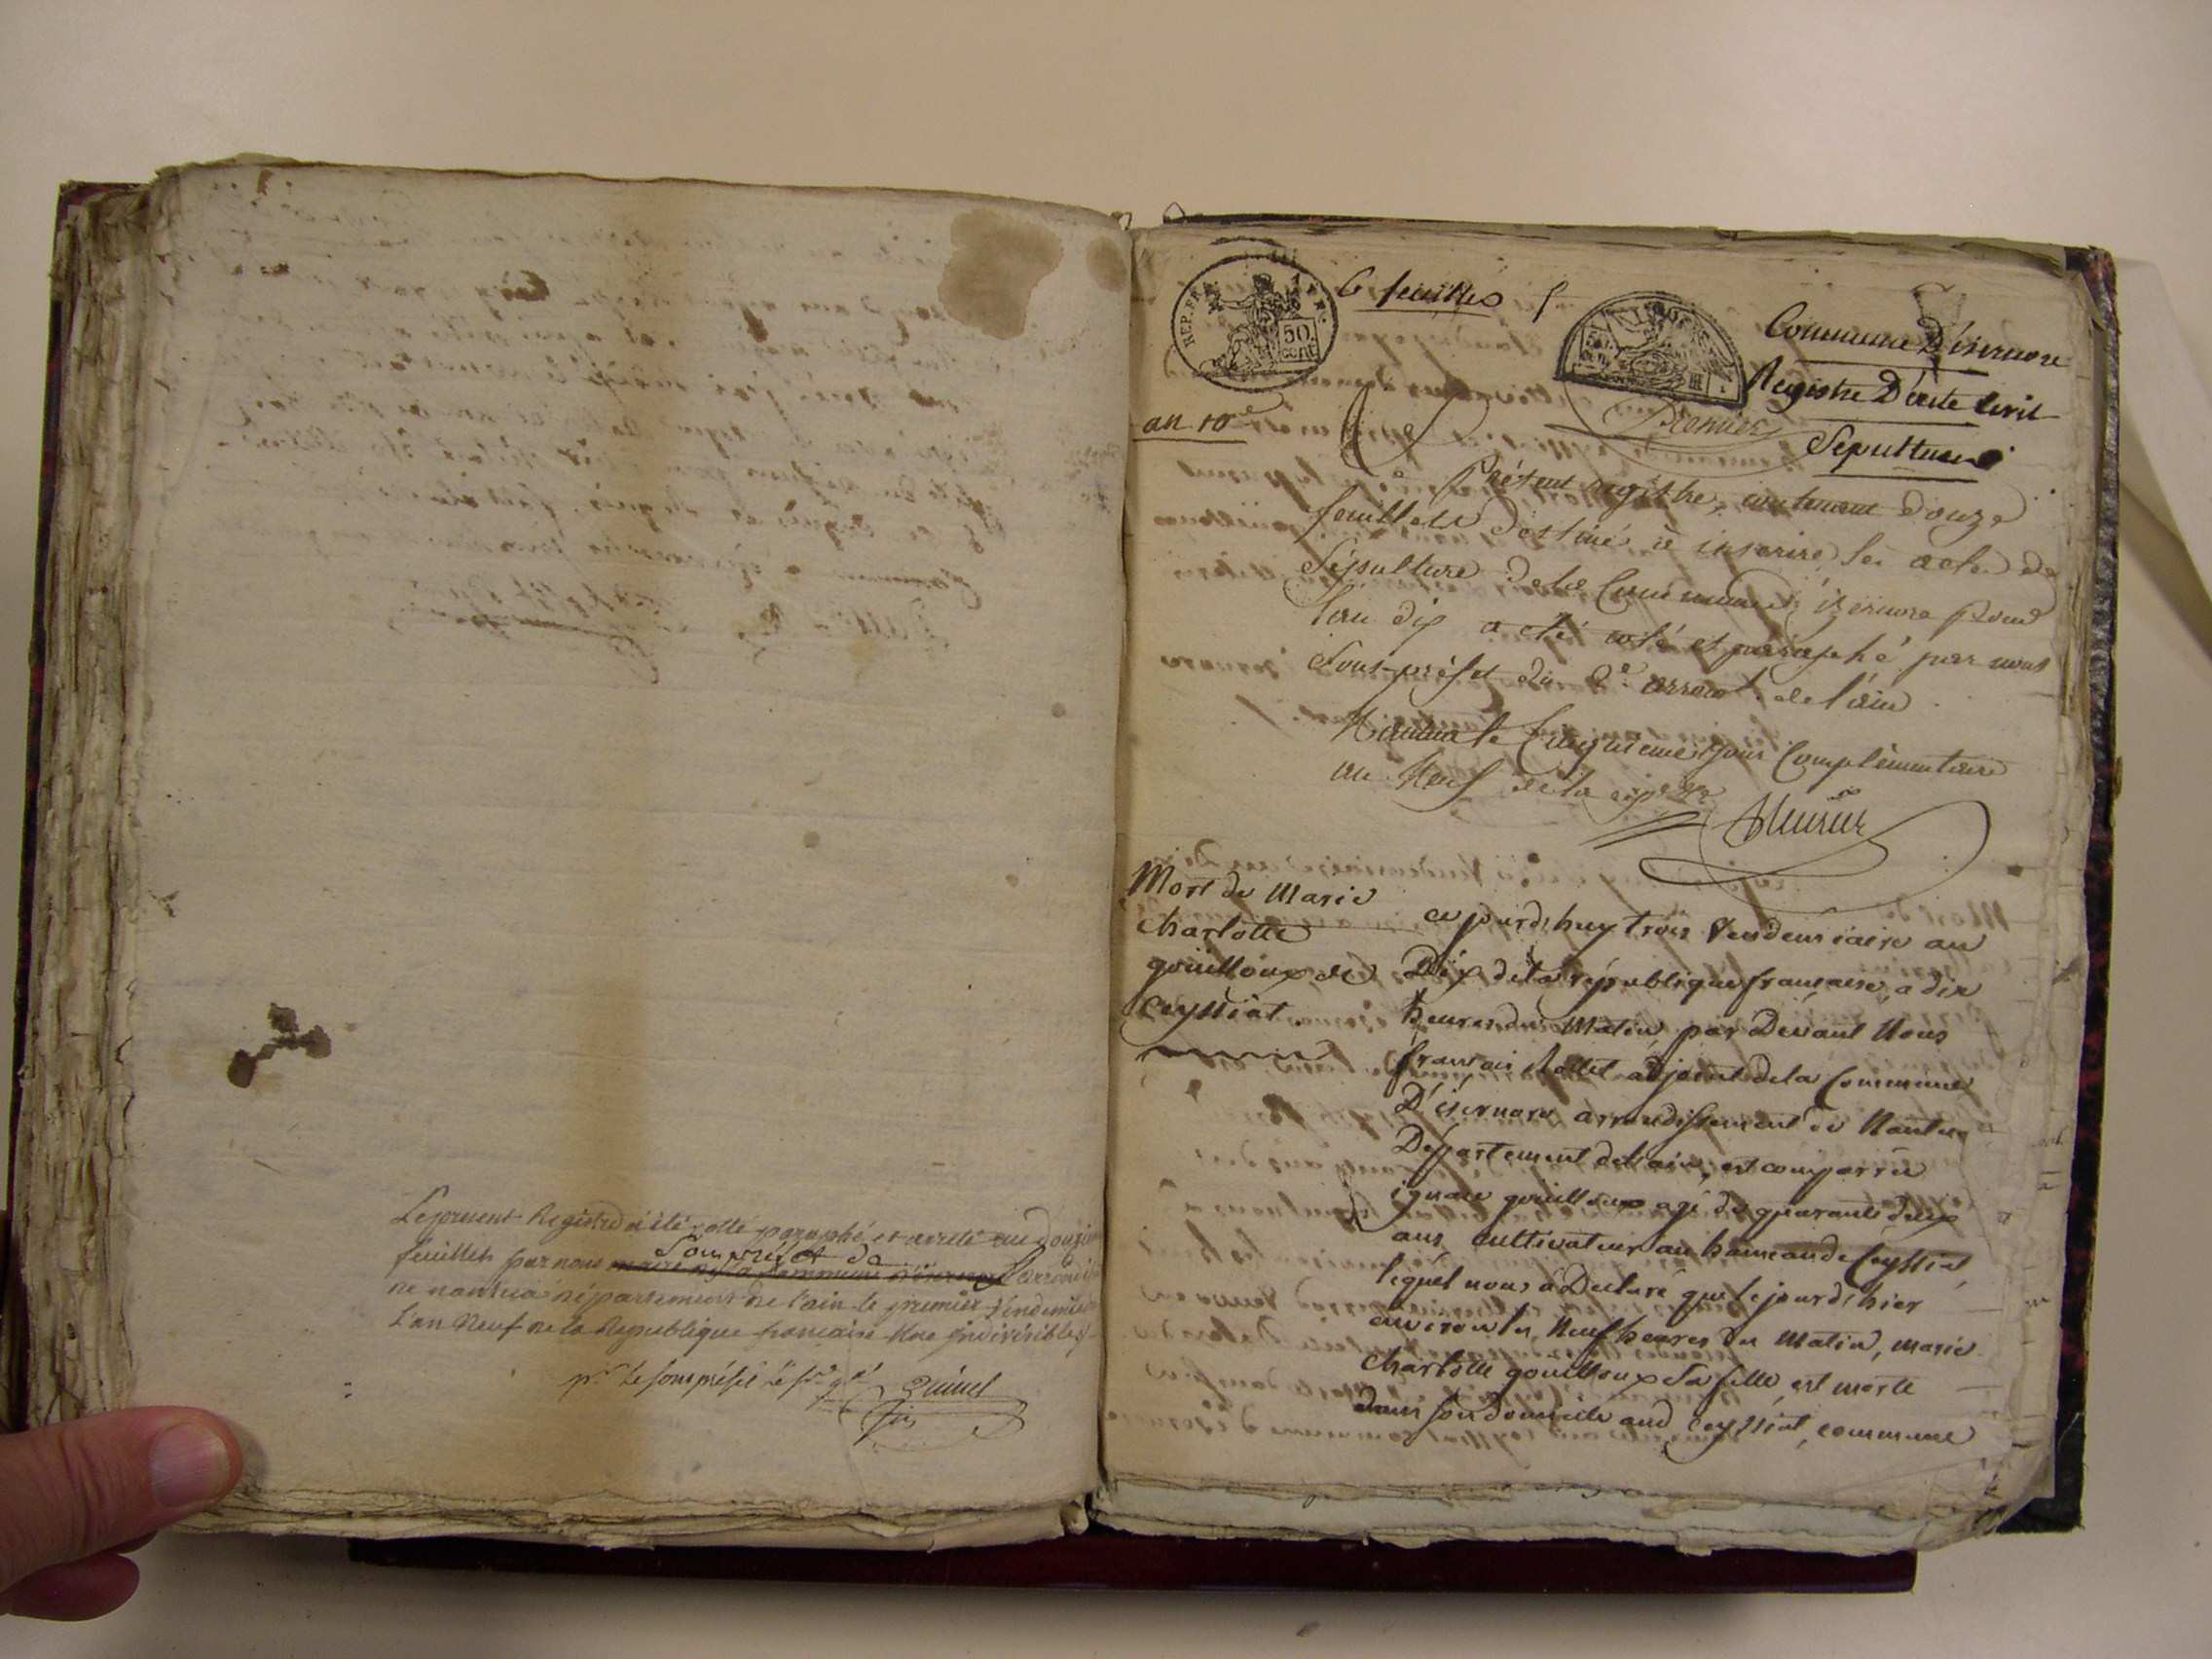 Le present Registre a été cotté paraphé et arreté au douzieme
feuillet par nous maire de la commune d'isernore l'arrondis
Sousprefet de
de nantua département de l'ain le premier Vendemiaire
L'an Neuf de la Republique francaise Une Indivisible
pr. Le sousprefet
REP. FRA.
50 cent
6 feuilles
Commune D'isernore
Registre D'acte Civil
Sepultures
an 10e
Premier
Le Présent registre, contenant douze
feuillets destiné à inscrire les actes de
Sépulture de la Commune d'izernore pour
l'an dix a été coté et paraphé par nous
Sous-préfet du 2e arrond.t de l'ain
Nantua le Cinquieme jour Complémentaire
an Neuf de la rep.
Mort de Marie
charlotte
gouilloux de
Ceyssiat
ce jourd'huy trois Vendemiaire an
Dix de la république francaise, a dix
heures du Matin par Devant Nous
francois adjoint de la Commune
D'isernore arrondissement de Nantua
Département de l'ain, est comparru
ignace gouilloux agé de quarante deux
ans cultivateur au hameau de Ceyssiat
lequel nous a Declaré que le jour d'hier
environ les Neuf heures du Matin, marie
charlotte gouilloux sa fille est morte
dans son domicile aud Ceyssiat, commune